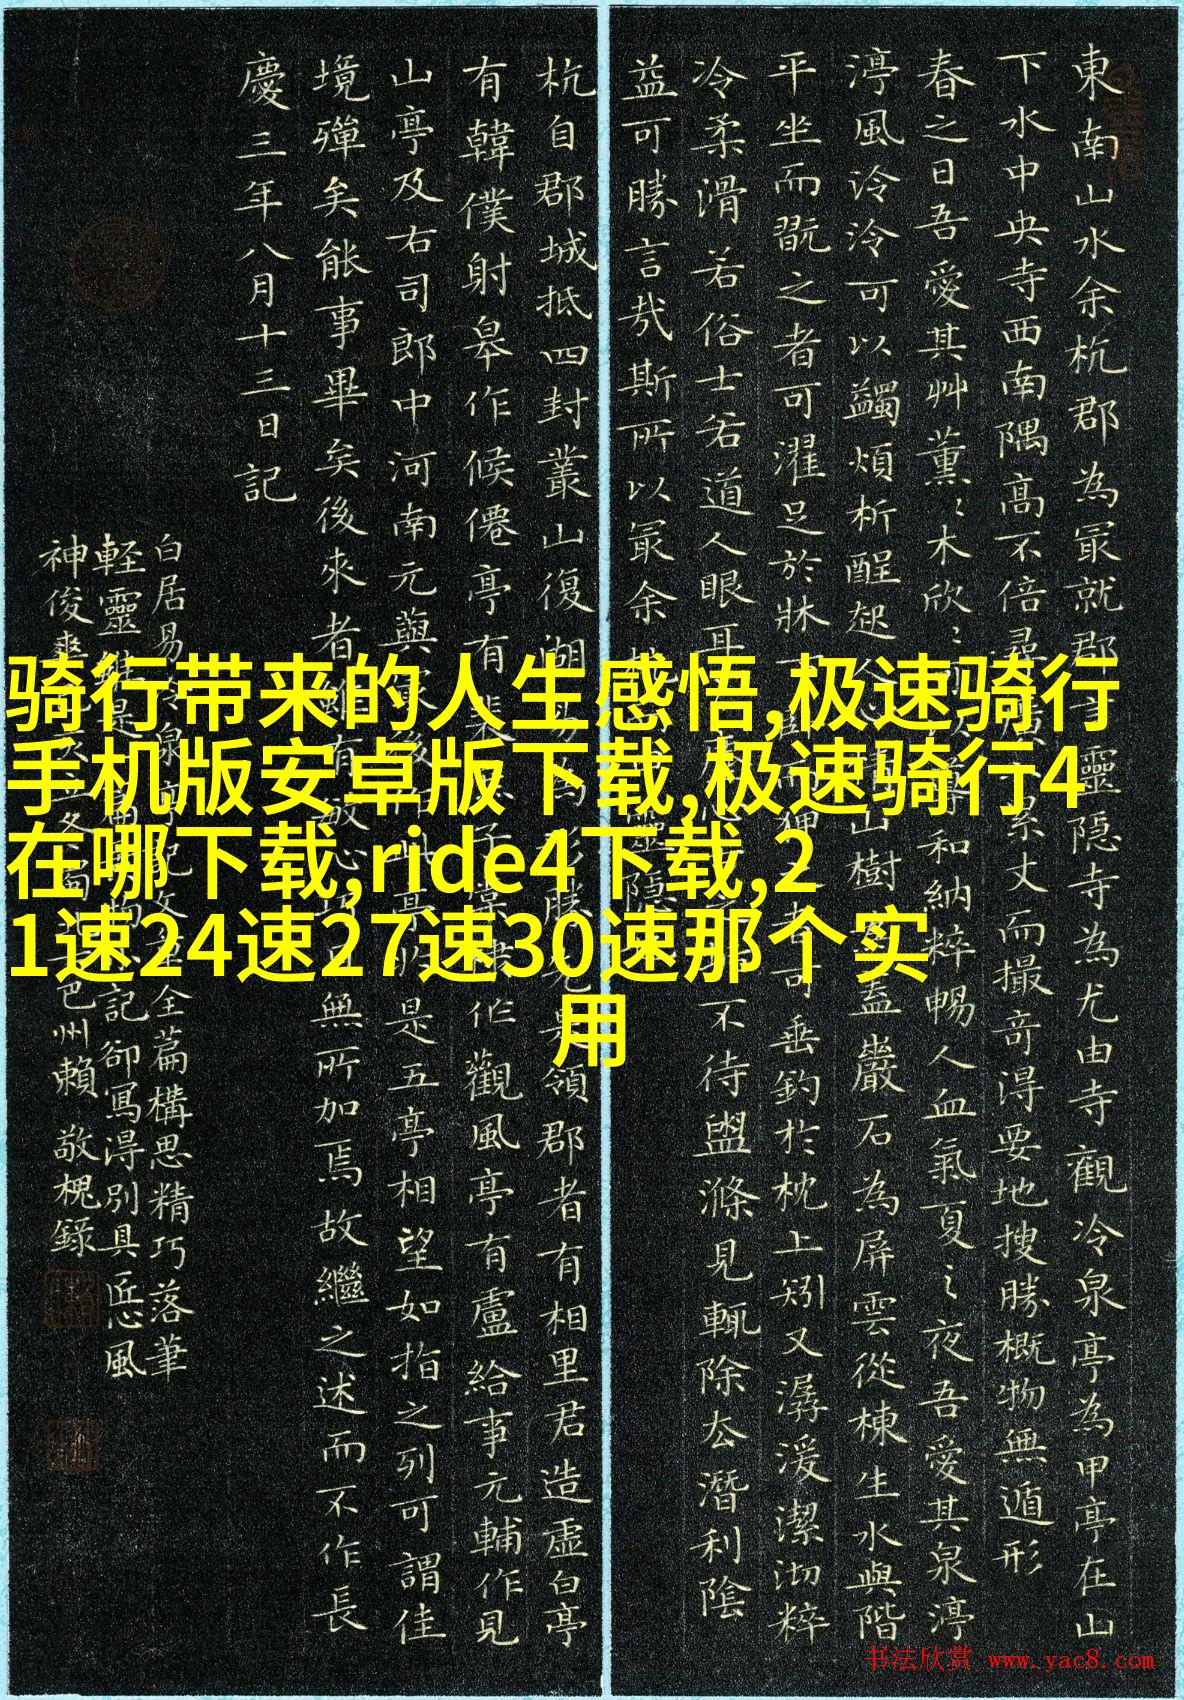 東南山水余杭郡為冣就郡靈隱寺為尤由寺觀冷泉亭為甲亭在山
下水中央寺西南隅高不倍尋累丈而撮竒得要地搜勝概物無遁形
春之日吾愛其艸薰〻木欣〻和納粹暢人血氣夏之夜吾愛其泉渟
渟風泠泠可以蠲煩析酲起山樹蓋巖石為屏雲從棟生水與階
平坐而翫之者可濯足於牀狎可垂釣於枕上矧又潺湲潔沏粹
冷柔滑若俗士若道人眼耳不待盥滌見輒除去潛利陰
益可勝言哉斯所以冣余靈隱
杭自郡城抵四封叢山復湖易為形勝先是領郡者有相里君造虛白亭
有韓僕射皋作候僊亭有裴子作觀風亭有盧給事元輔作見
山亭及右司郎中河南元藇亭是五亭相望如指之列可謂佳
境殫矣能事畢矣後來者雖有敏心無所加焉故繼之述而不作長
慶三年八月十三日記
白居易全篇構思精巧落筆
輕靈記卻寫得別具匠心風
神俊爽巴州賴敬槐錄
骑行带来的人生感悟,极速骑行
手机版安卓版下载,极速骑行4
在哪下载,ride4下载,2
1速24速27速30速那个实
用
书法欣赏 www.yac8.com